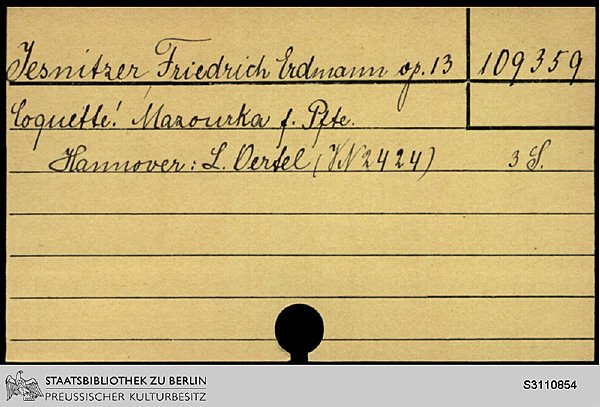 Jesnitzer Friedrich Erdmann op. 13 109359
Coquette! Mazourka f. Pfte.
Hannover: L. Oertel (VN 2424) 3 S.
STAATSBIBLIOTHEK ZU BERLIN
PREUSSISCHER KULTURBESITZ
S3110854